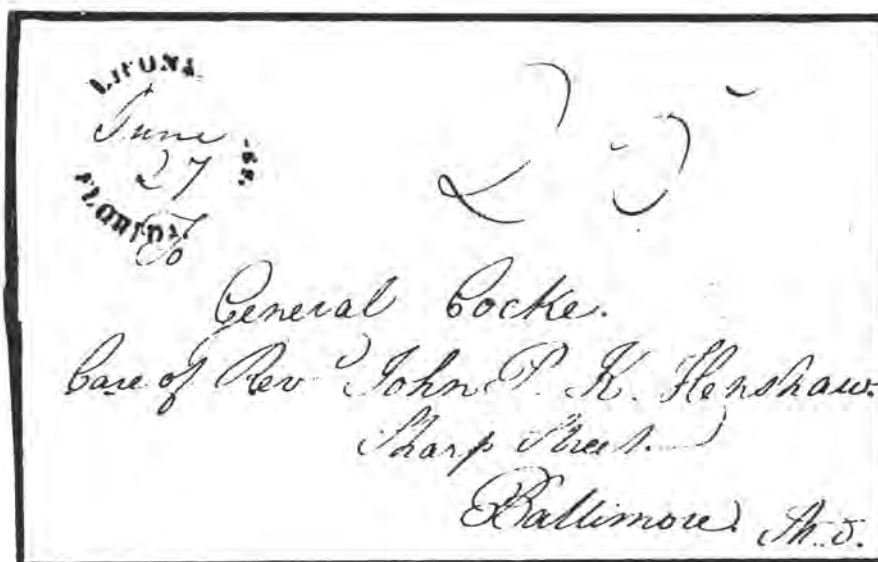 LIPONA
June
27
FLORIDA
25
To
General Cocke.
Care of Rev^d John P. K. Henshaw.
Sharp Street.
Baltimore. Md.